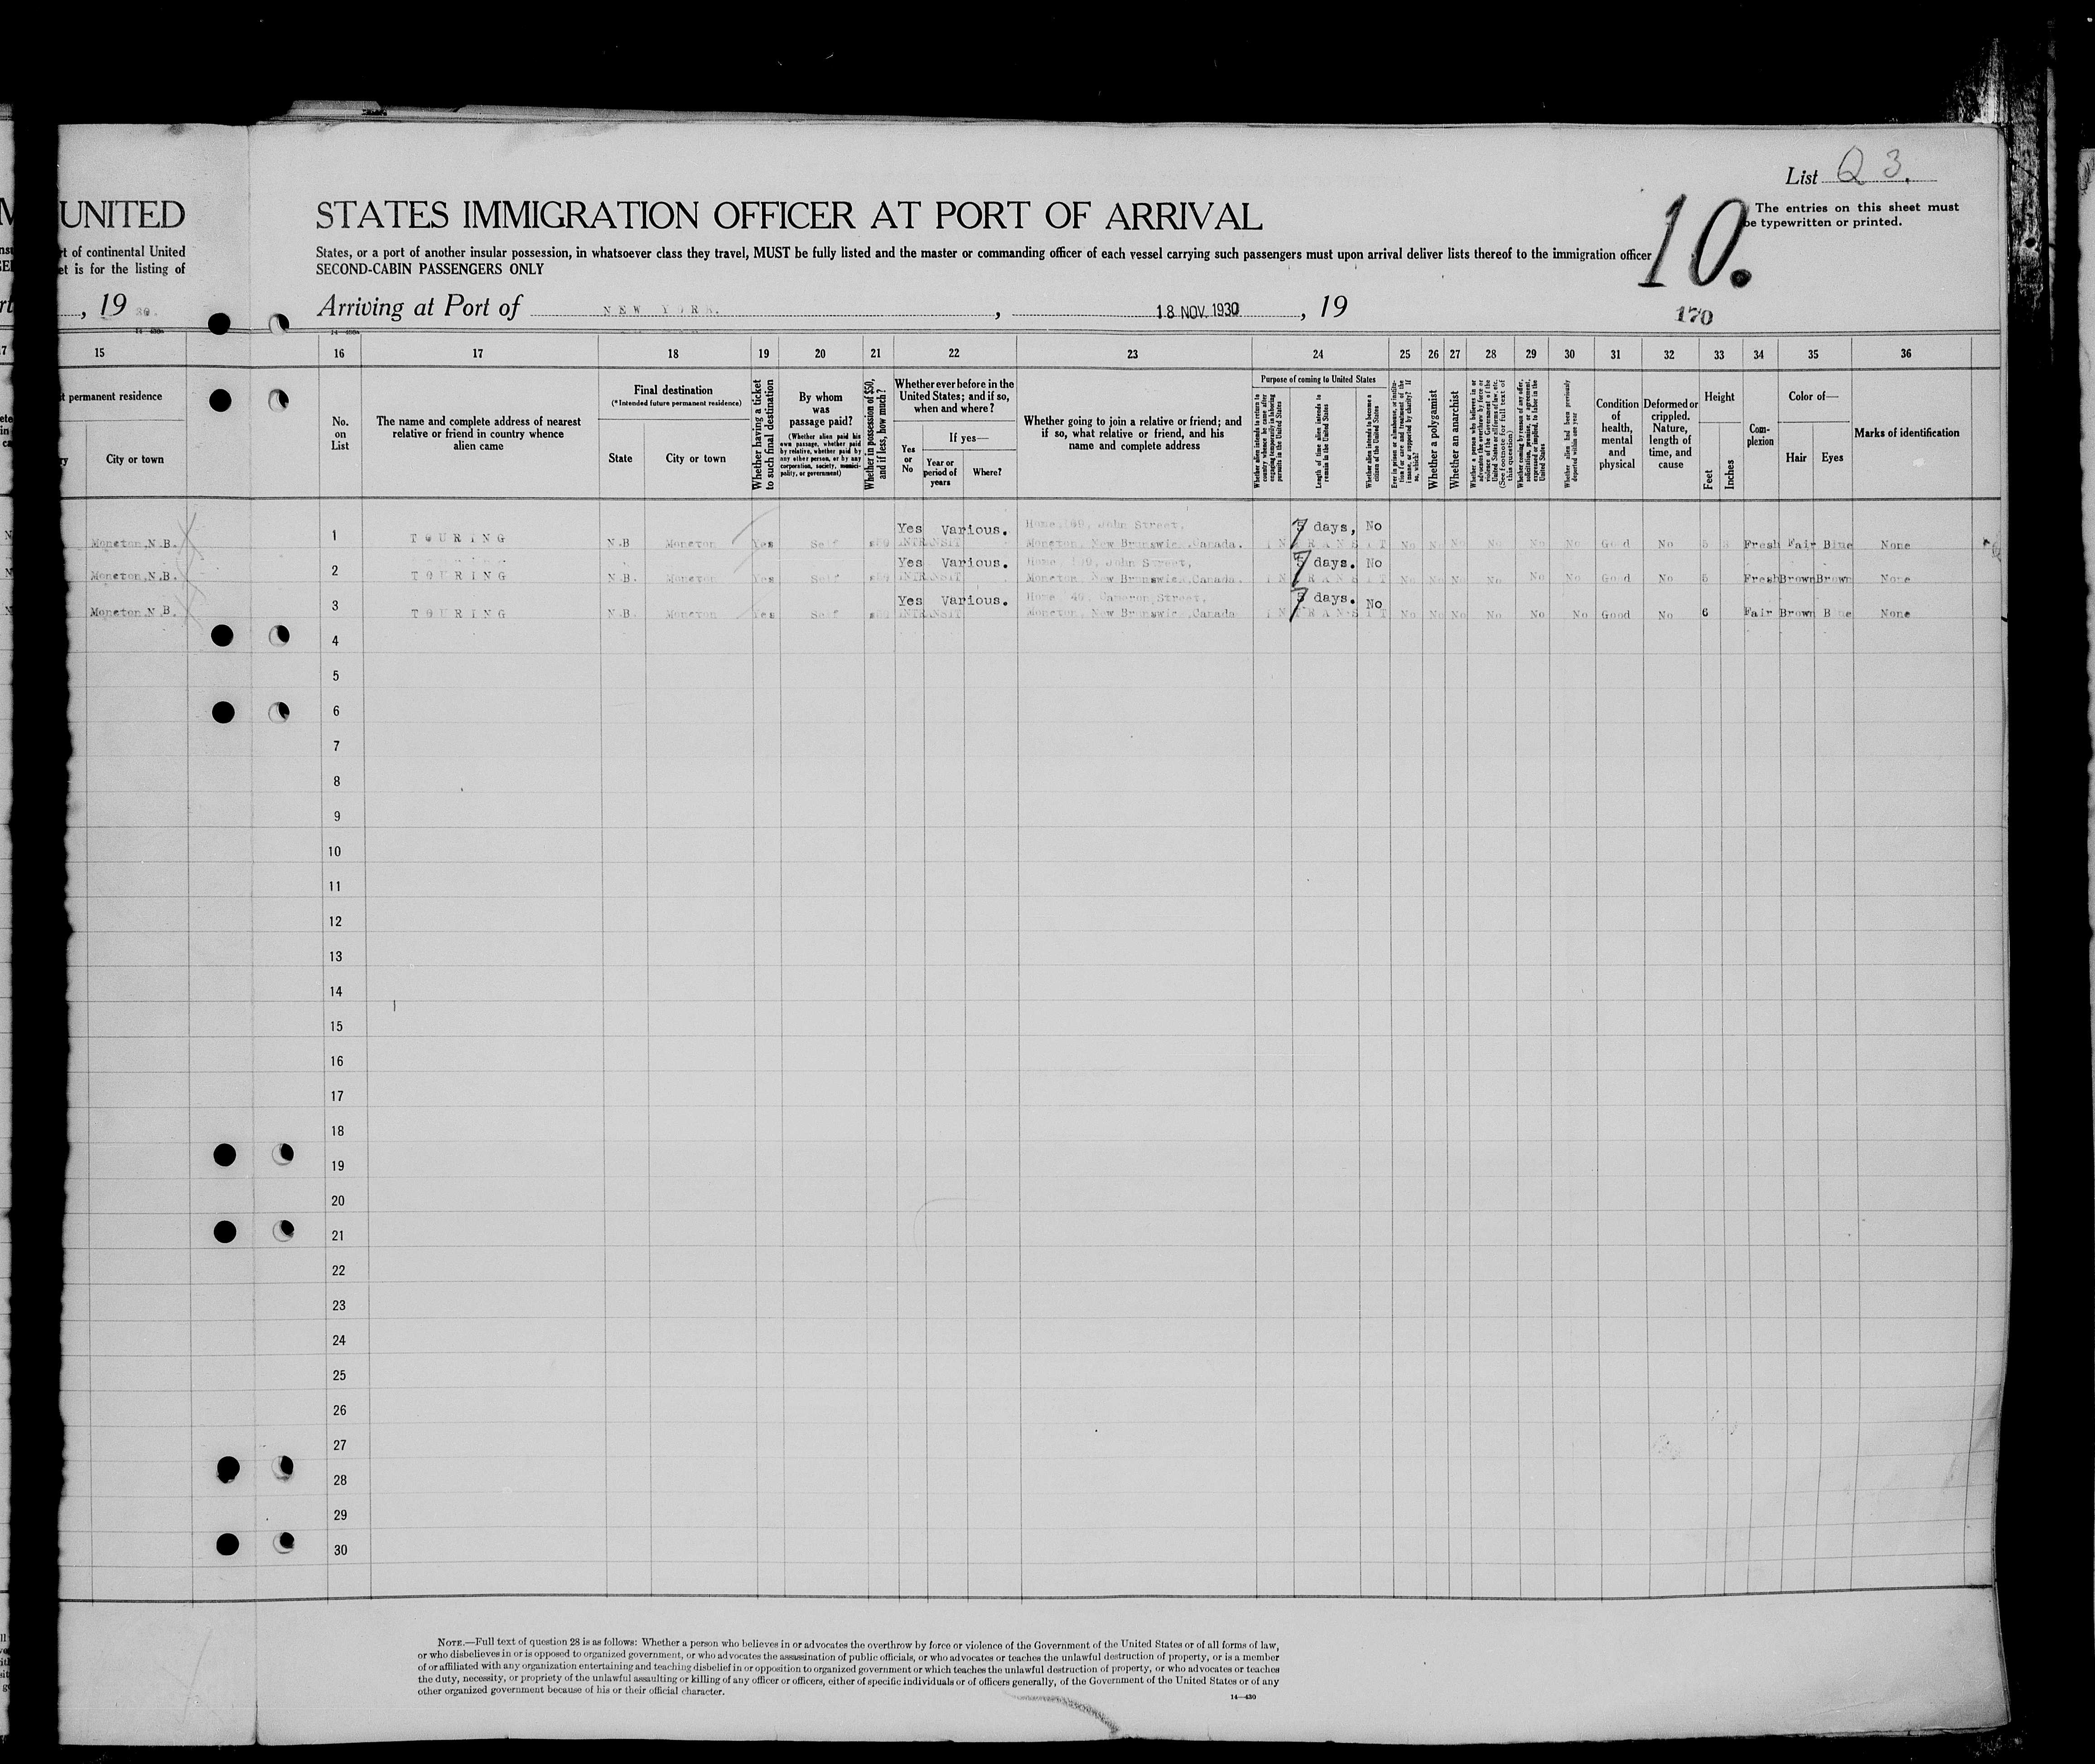 List Q 3.
UNITED STATES IMMIGRATION OFFICER AT PORT OF ARRIVAL
10.
The entries on this sheet must
be typewritten or printed.
rt of continental United States, or a port of another insular possession, in whatsoever class they travel, MUST be fully listed and the master or commanding officer of each vessel carrying such passengers must upon arrival deliver lists thereof to the immigration officer
et is for the listing of SECOND-CABIN PASSENGERS ONLY
, 19 30. Arriving at Port of NEW YORK. , 18 NOV. 1930 , 19
170
15 16 17 18 19 20 21 22 23 24 25 26 27 28 29 30 31 32 33 34 35 36
t permanent residence
City or town
No. on List
The name and complete address of nearest relative or friend in country whence alien came
Final destination
(*Intended future permanent residence)
State
City or town
Whether having a ticket to such final destination
By whom was passage paid?
(Whether alien paid his own passage, whether paid by relative, whether paid by any other person, or by any corporation, society, municipality, or government)
Whether in possession of $50, and if less, how much?
Whether ever before in the United States; and if so, when and where?
Yes or No
If yes—
Year or period of years
Where?
Whether going to join a relative or friend; and if so, what relative or friend, and his name and complete address
Purpose of coming to United States
Whether alien intends to return to country whence he came after engaging temporarily in laboring pursuits in the United States
Length of time alien intends to remain in the United States
Whether alien intends to become a citizen of the United States
Ever in prison or almshouse, or institution for care and treatment of the insane, or supported by charity? If so, which?
Whether a polygamist
Whether an anarchist
Whether a person who believes in or advocates the overthrow by force or violence of the Government of the United States or all forms of law, etc. (See footnote for full text of this question)
Whether coming by reason of any offer, solicitation, promise, or agreement, expressed or implied, to labor in the United States
Whether alien had been previously deported within one year
Condition of health, mental and physical
Deformed or crippled. Nature, length of time, and cause
Height
Feet
Inches
Complexion
Color of—
Hair
Eyes
Marks of identification
Moncton, N.B. 1 TOURING N.B Moncton Yes Self Yes Various. INTRANSIT Home, John Street, Moncton, New Brunswick, Canada. 7 days, No INTRANSIT No No No No No No Good No 5 Fresh Fair Blue None
Moncton, N.B. 2 TOURING N.B. Moncton Yes Self Yes Various. INTRANSIT Home, John Street, Moncton, New Brunswick, Canada. 7 days. No INTRANSIT No No No No No No Good No 5 Fresh Brown Brown None
Moncton, N.B. 3 TOURING N.B. Moncton Yes Self Yes Various. INTRANSIT Home, Cameron Street, Moncton, New Brunswick, Canada 7 days. No INTRANSIT No No No No No No Good No 6 Fair Brown Blue None
4
5
6
7
8
9
10
11
12
13
14
15
16
17
18
19
20
21
22
23
24
25
26
27
28
29
30
NOTE.—Full text of question 28 is as follows: Whether a person who believes in or advocates the overthrow by force or violence of the Government of the United States or of all forms of law,
or who disbelieves in or is opposed to organized government, or who advocates the assassination of public officials, or who advocates or teaches the unlawful destruction of property, or is a member
of or affiliated with any organization entertaining and teaching disbelief in or opposition to organized government or which teaches the unlawful destruction of property, or who advocates or teaches
the duty, necessity, or propriety of the unlawful assaulting or killing of any officer or officers, either of specific individuals or of officers generally, of the Government of the United States or of any
other organized government because of his or their official character.
14—430